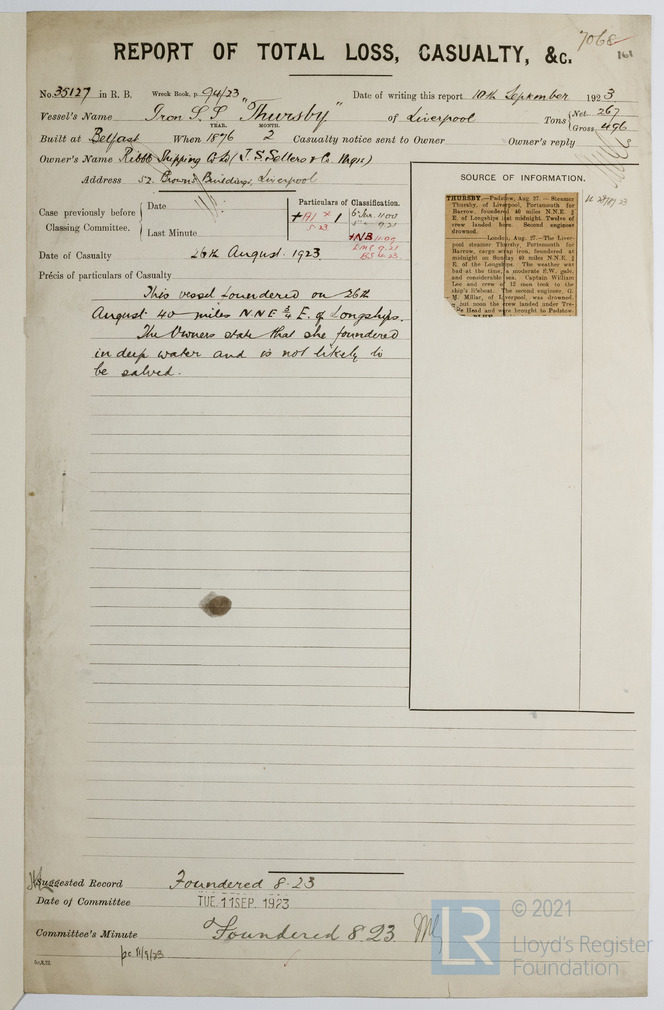 7068
REPORT OF TOTAL LOSS, CASUALTY, &c.
No. 35127 in R. B. Wreck Book, p. 94/23 Date of writing this report 10th September 1923
Vessel's Name Iron S.S "Thursby" of Liverpool Tons { Net 267
Gross 496
YEAR. MONTH.
Built at Belfast When 1876 2 Casualty notice sent to Owner Owner's reply
Owner's Name Ribble Shipping Co Ld (J. S. Sellers & Co Mgrs)
Address 52. Crown Buildings, Liverpool
Case previously before Classing Committee. { Date
Last Minute
Particulars of Classification.
Date of Casualty 26th August. 1923.
Précis of particulars of Casualty
This vessel foundered on 26th
August 40 miles N.N.E ¾ E. of Longships.
The Owners state that she foundered
in deep water and is not likely to
be salved.
SOURCE OF INFORMATION.
THURSBY.—Padstow, Aug. 27.—Steamer
Thursby, of Liverpool, Portsmouth for
Barrow, foundered 40 miles N.N.E. ¾
E. of Longships last midnight. Twelve of
crew landed here. Second engineer
drowned.
——London, Aug. 27.—The Liver-
pool steamer Thursby, Portsmouth for
Barrow, cargo scrap iron, foundered at
midnight on Sunday 40 miles N.N.E. ¾
E. of the Longships. The weather was
bad at the time, a moderate S.W. gale,
and considerable sea. Captain William
Lee and crew of 12 men took to the
ship's lifeboat. The second engineer, G.
M. Millar, of Liverpool, was drowned.
but soon the crew landed under Tre-
Head and were brought to Padstow.
Suggested Record Foundered 8.23
Date of Committee TUE. 11 SEP. 1923
Committee's Minute Foundered 8.23
pc 11/9/23
LR
© 2021
Lloyd's Register
Foundation